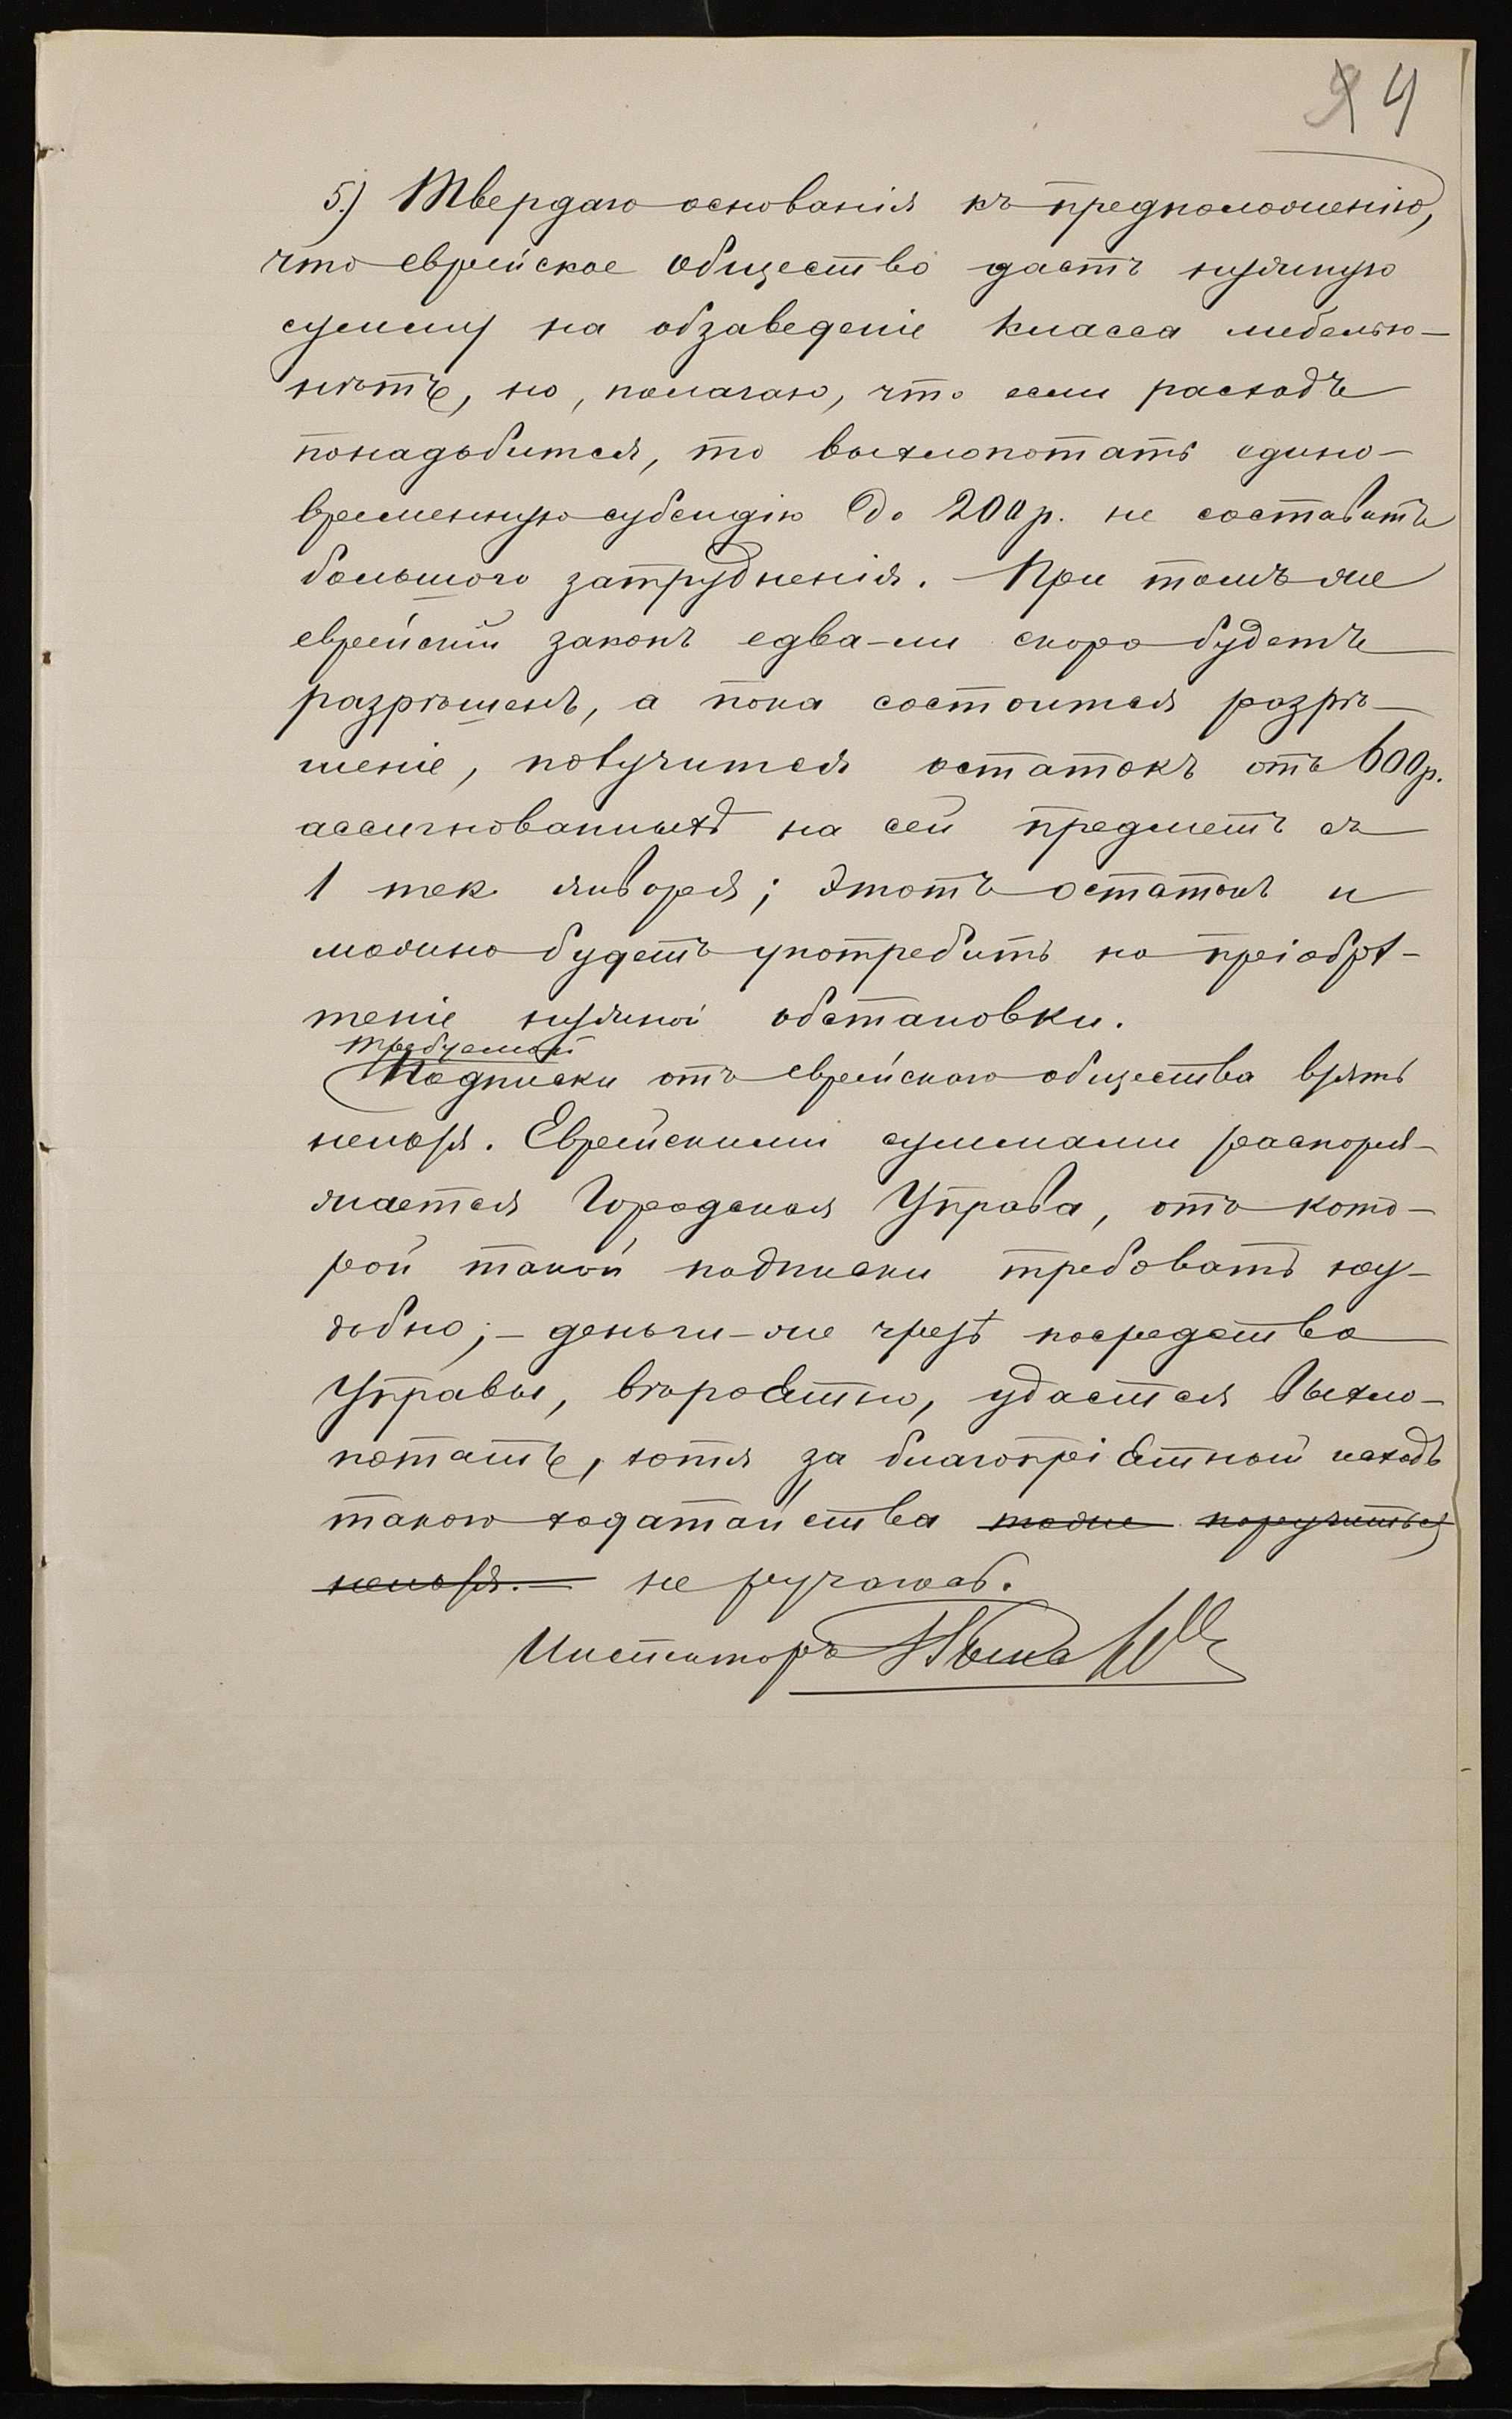 4
5.) Твердаго основанія къ предположенію,
что еврейское общество дастъ нужную
сумму на обзаведеніе класса мебелью –
нѣтъ, но, полагаю, что если расходъ
понадобится, то выхлопотать едино-
временную субсидію до 200 р. не составитъ
большого затрудненія. При томъ же
еврейскій законъ едва-ли скоро будетъ
разрѣшенъ, а пока состоится разрѣ-
шеніе, получится остатокъ отъ 600 р.
ассигнованныхъ на сей предметъ съ
1 тек. января; этотъ остатокъ и
можно будетъ употребить на пріобрѣ-
теніе нужной обстановки.
требуемой
Подписки отъ еврейскаго общества взять
нельзя. Еврейскими суммами распоря-
жается Городская Управа, отъ кото-
рой такой подписки требовать неу-
добно; – деньги-же чрезъ посредство
Управы, вѣроятно, удастся выхло-
потать, хотя за благопріятный исходъ
такого ходатайства тоже поручиться
нельзя. – не ручаюсь.
Инспекторъ